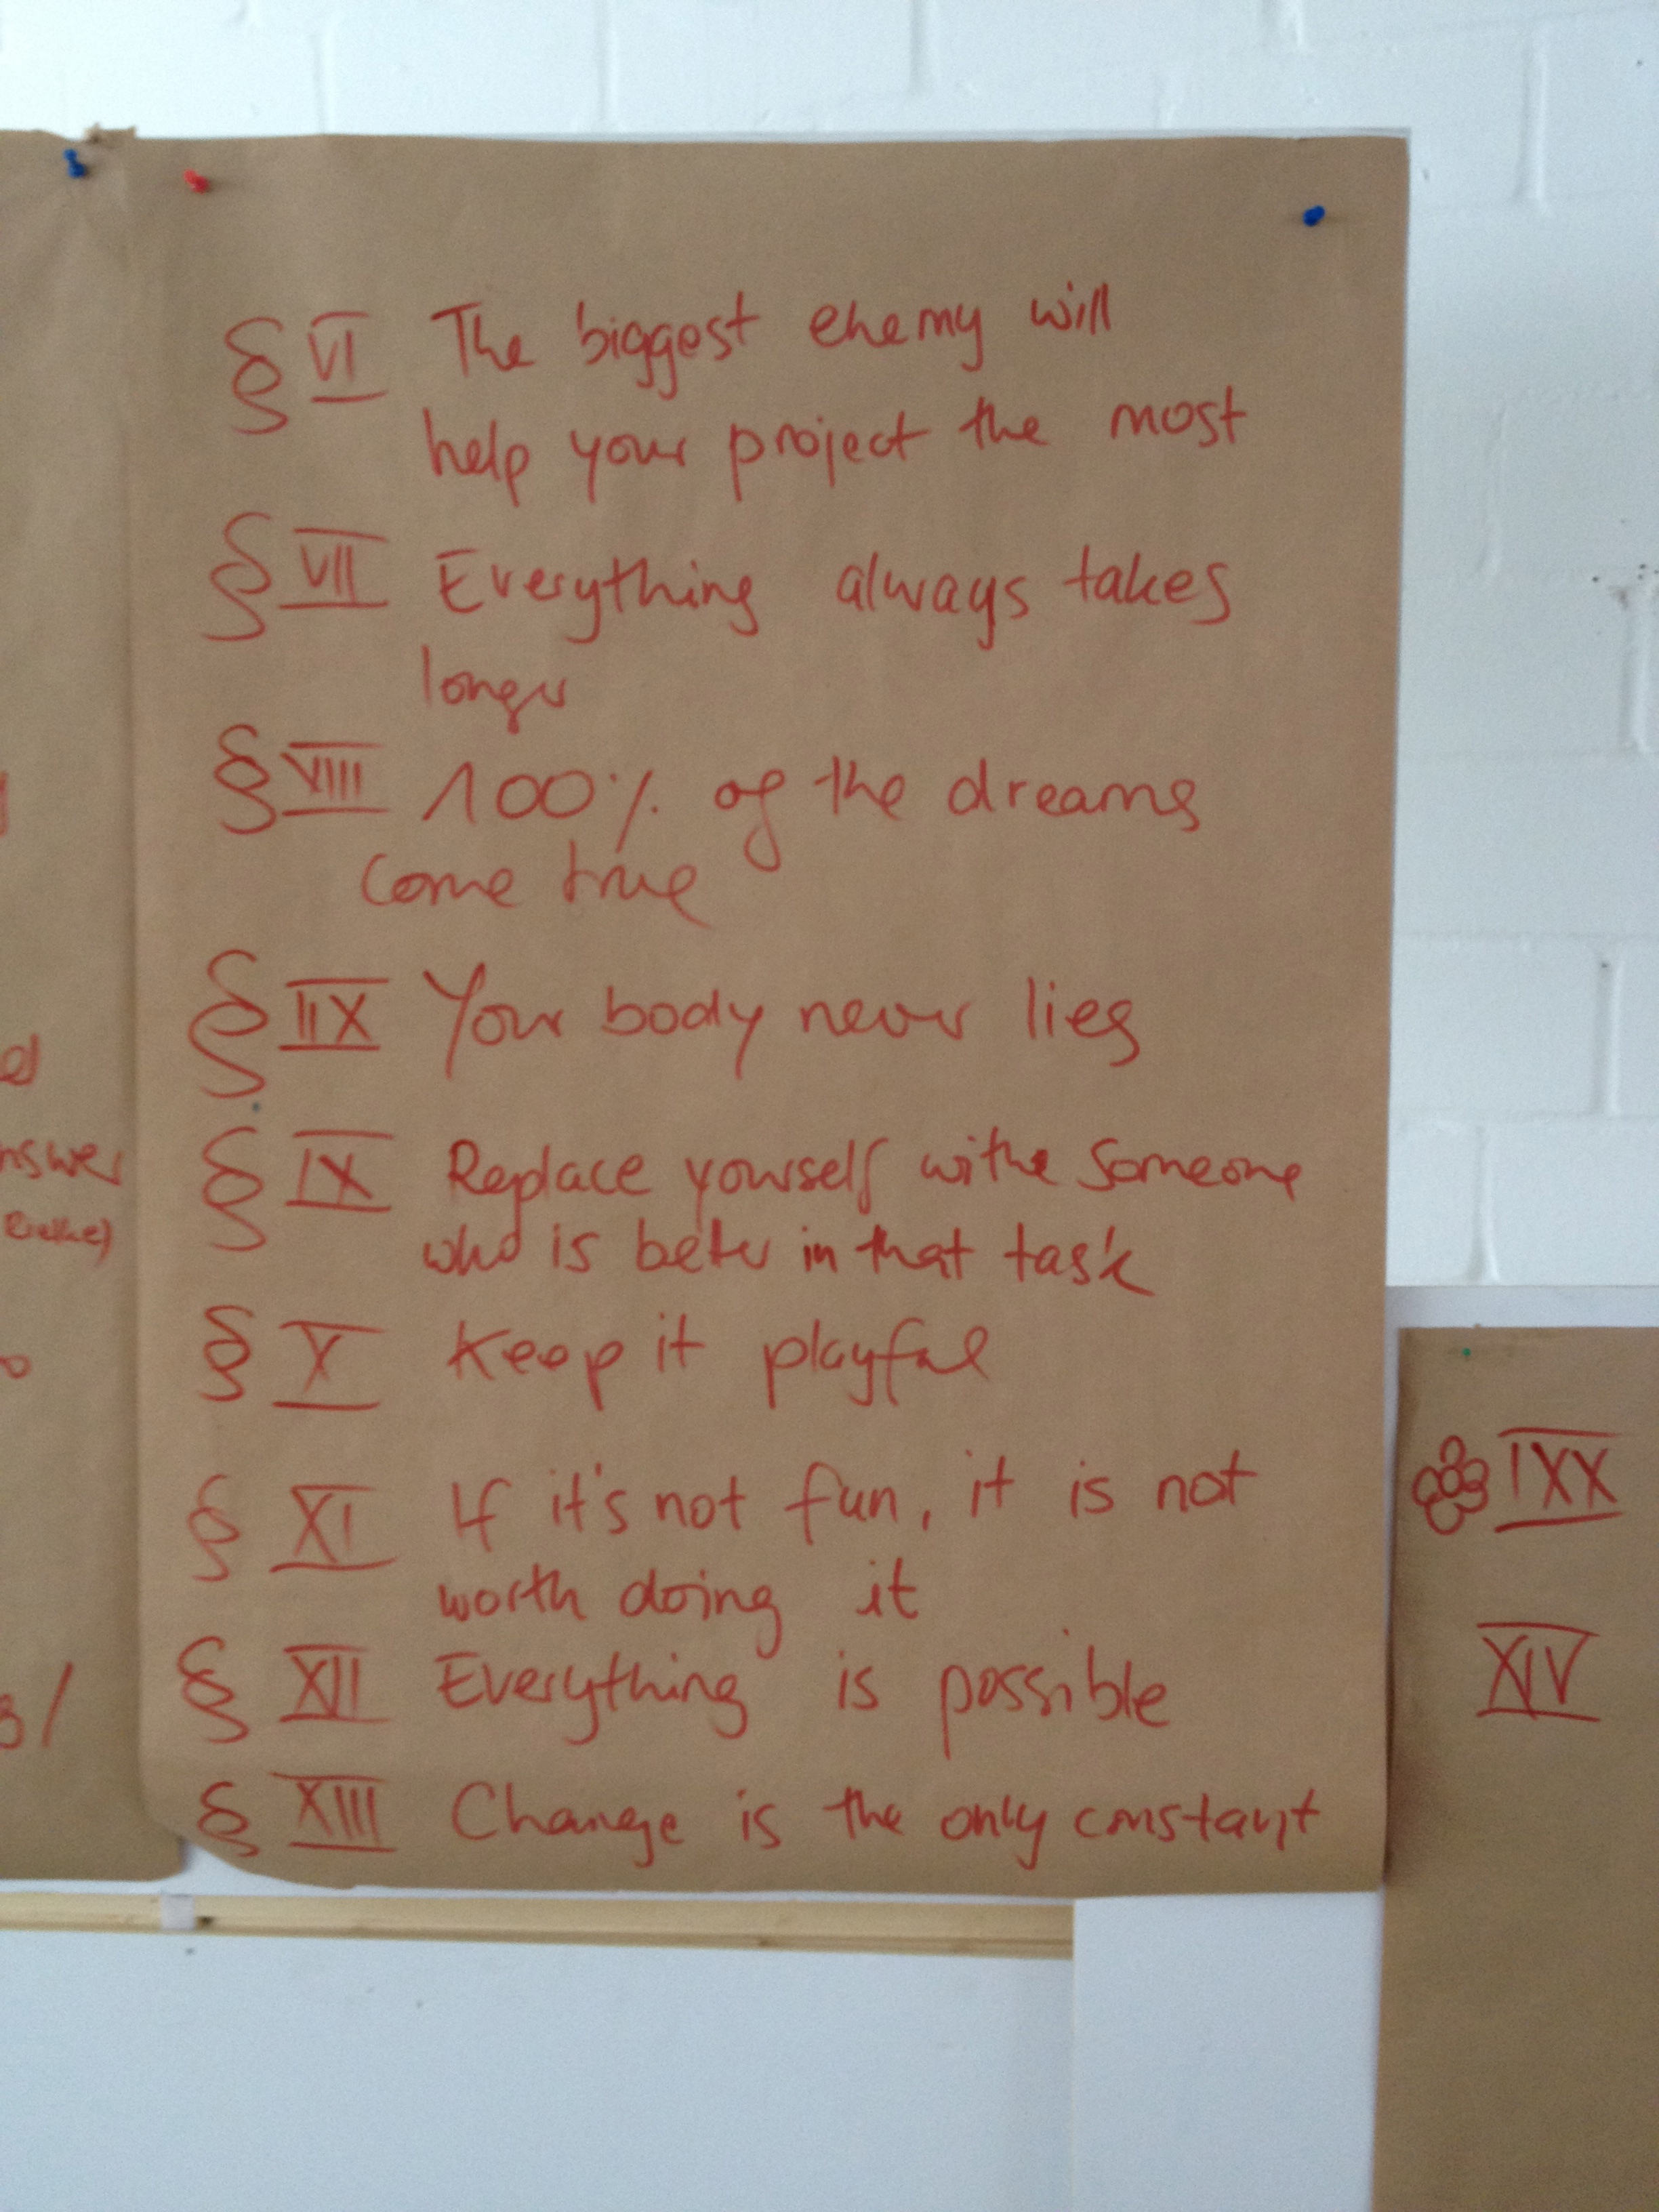 § VI The biggest enemy will
help your project the most
§ VII Everything always takes
longer
§ VIII 100% of the dreams
come true
§ IIX Your body never lies
§ IX Replace yourself withe someone
who is better in that task
§ X Keep it playful
§ XI If it's not fun, it is not
worth doing it
§ XII Everything is possible
§ XIII Change is the only constant
nswer
IXX
XIV